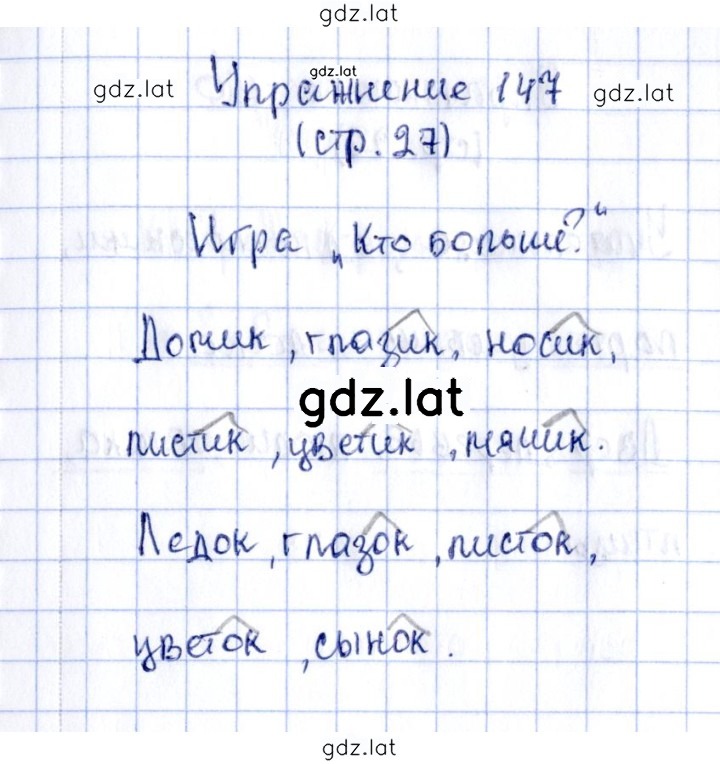 gdz.lat
gdz.lat
gdz.lat
gdz.lat
Упражнение 147
(стр. 27)
Игра „Кто больше?“
Домик, глазик, носик,
gdz.lat
листик, цветик, мячик.
Ледок, глазок, листок,
цветок, сынок.
gdz.lat